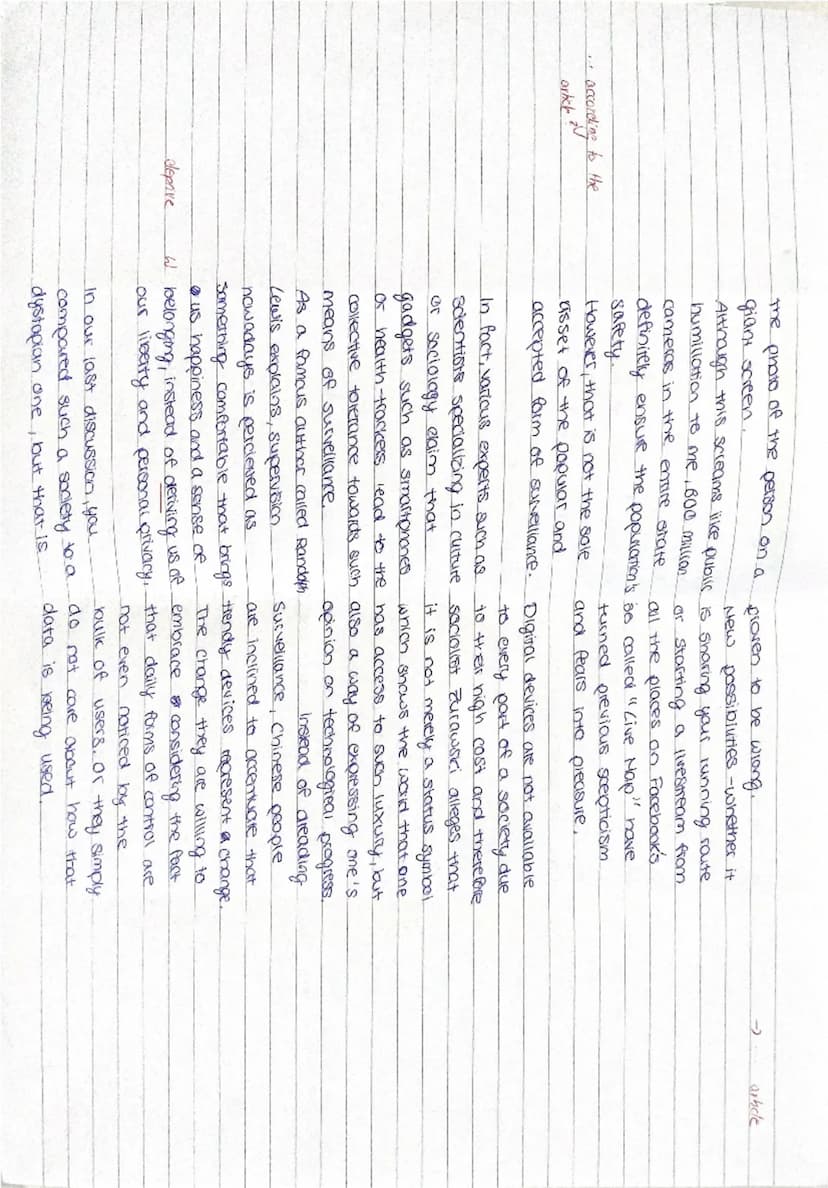 the photo of the person on a
giant screen.
Although this screams like public
humiliation to me, 600 million
cameras in the entire state
definitely ensure the population's
safety.
However, that is not the sole
asset of the popular and
accepted form of surveillance.
... according to the
article 2
In fact, various experts such as
scientists specializing in culture
or sociology claim that
gadgets such as smartphones
or health-trackers lead to the
collective tolerance towards such
means of surveillance.
As a famous author called Randolph
Lewis explains, supervision
nowadays is percieved as
something comfortable that brings
us happiness and a sense of
belonging, instead of deriving us of
deprive W
our liberty and personal privacy.
In our last discussion, you
compared such a society to a
dystopian one, but that is
proven to be wrong.
→ ... article
New possibilities - whether it
is sharing your running route
or starting a livestream from
all the places on Facebook's
so called "Live Map" have
turned previous scepticism
and fears into pleasure.
Digital devices are not available
to every part of a society due
to their high cost and therefore
socialist Zurawski alleges that
it is not merely a status symbol
which shows the world that one
has access to such luxury, but
also a way of expressing one's
opinion on technological progress.
Instead of dreading
surveillance, Chinese people
are inclined to accentuate that
trendy devices represent a change.
The change they are willing to
embrace considering the fact
that daily forms of control are
not even noticed by the
bulk of users. Or they simply
do not care about how that
data is being used.